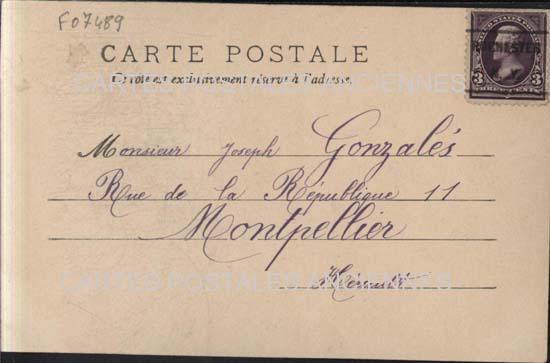 F07489
CARTE POSTALE
Ce côté est exclusivement réservé à l'adresse.
ROCHESTER
N.Y.
3 3
THREE CENTS
CARTES POSTALES ANCIENNES
Monsieur Joseph Gonzalés
Rue de la République 11
Montpellier
Hérault
CARTES POSTALES ANCIENNES